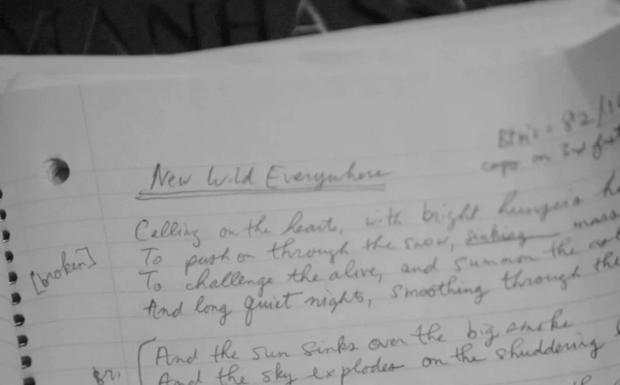 MANHASS
Bpm = 82/1
capo on 3rd fret
New Wild Everywhere
Calling on the hearts, with bright hungers
To push on through the snow, sinking mass
[broken]
To challenge the alive, and summon the
And long quiet nights, smoothing through the
And the sun sinks over the big smoke
And the sky explodes on the shuddering